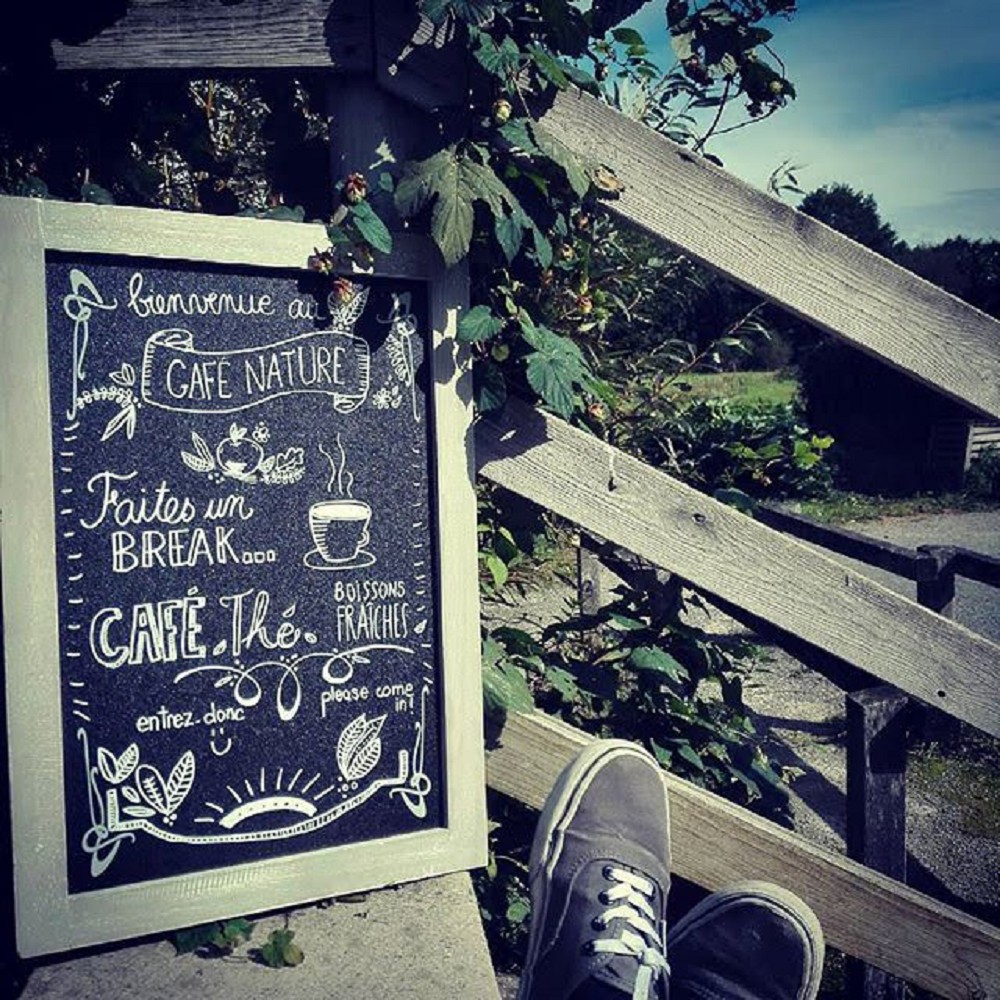 bienvenue au
CAFÉ NATURE
Faites un
BREAK...
CAFÉ. Thé.
BOISSONS
FRAÎCHES
entrez donc
please come
in!